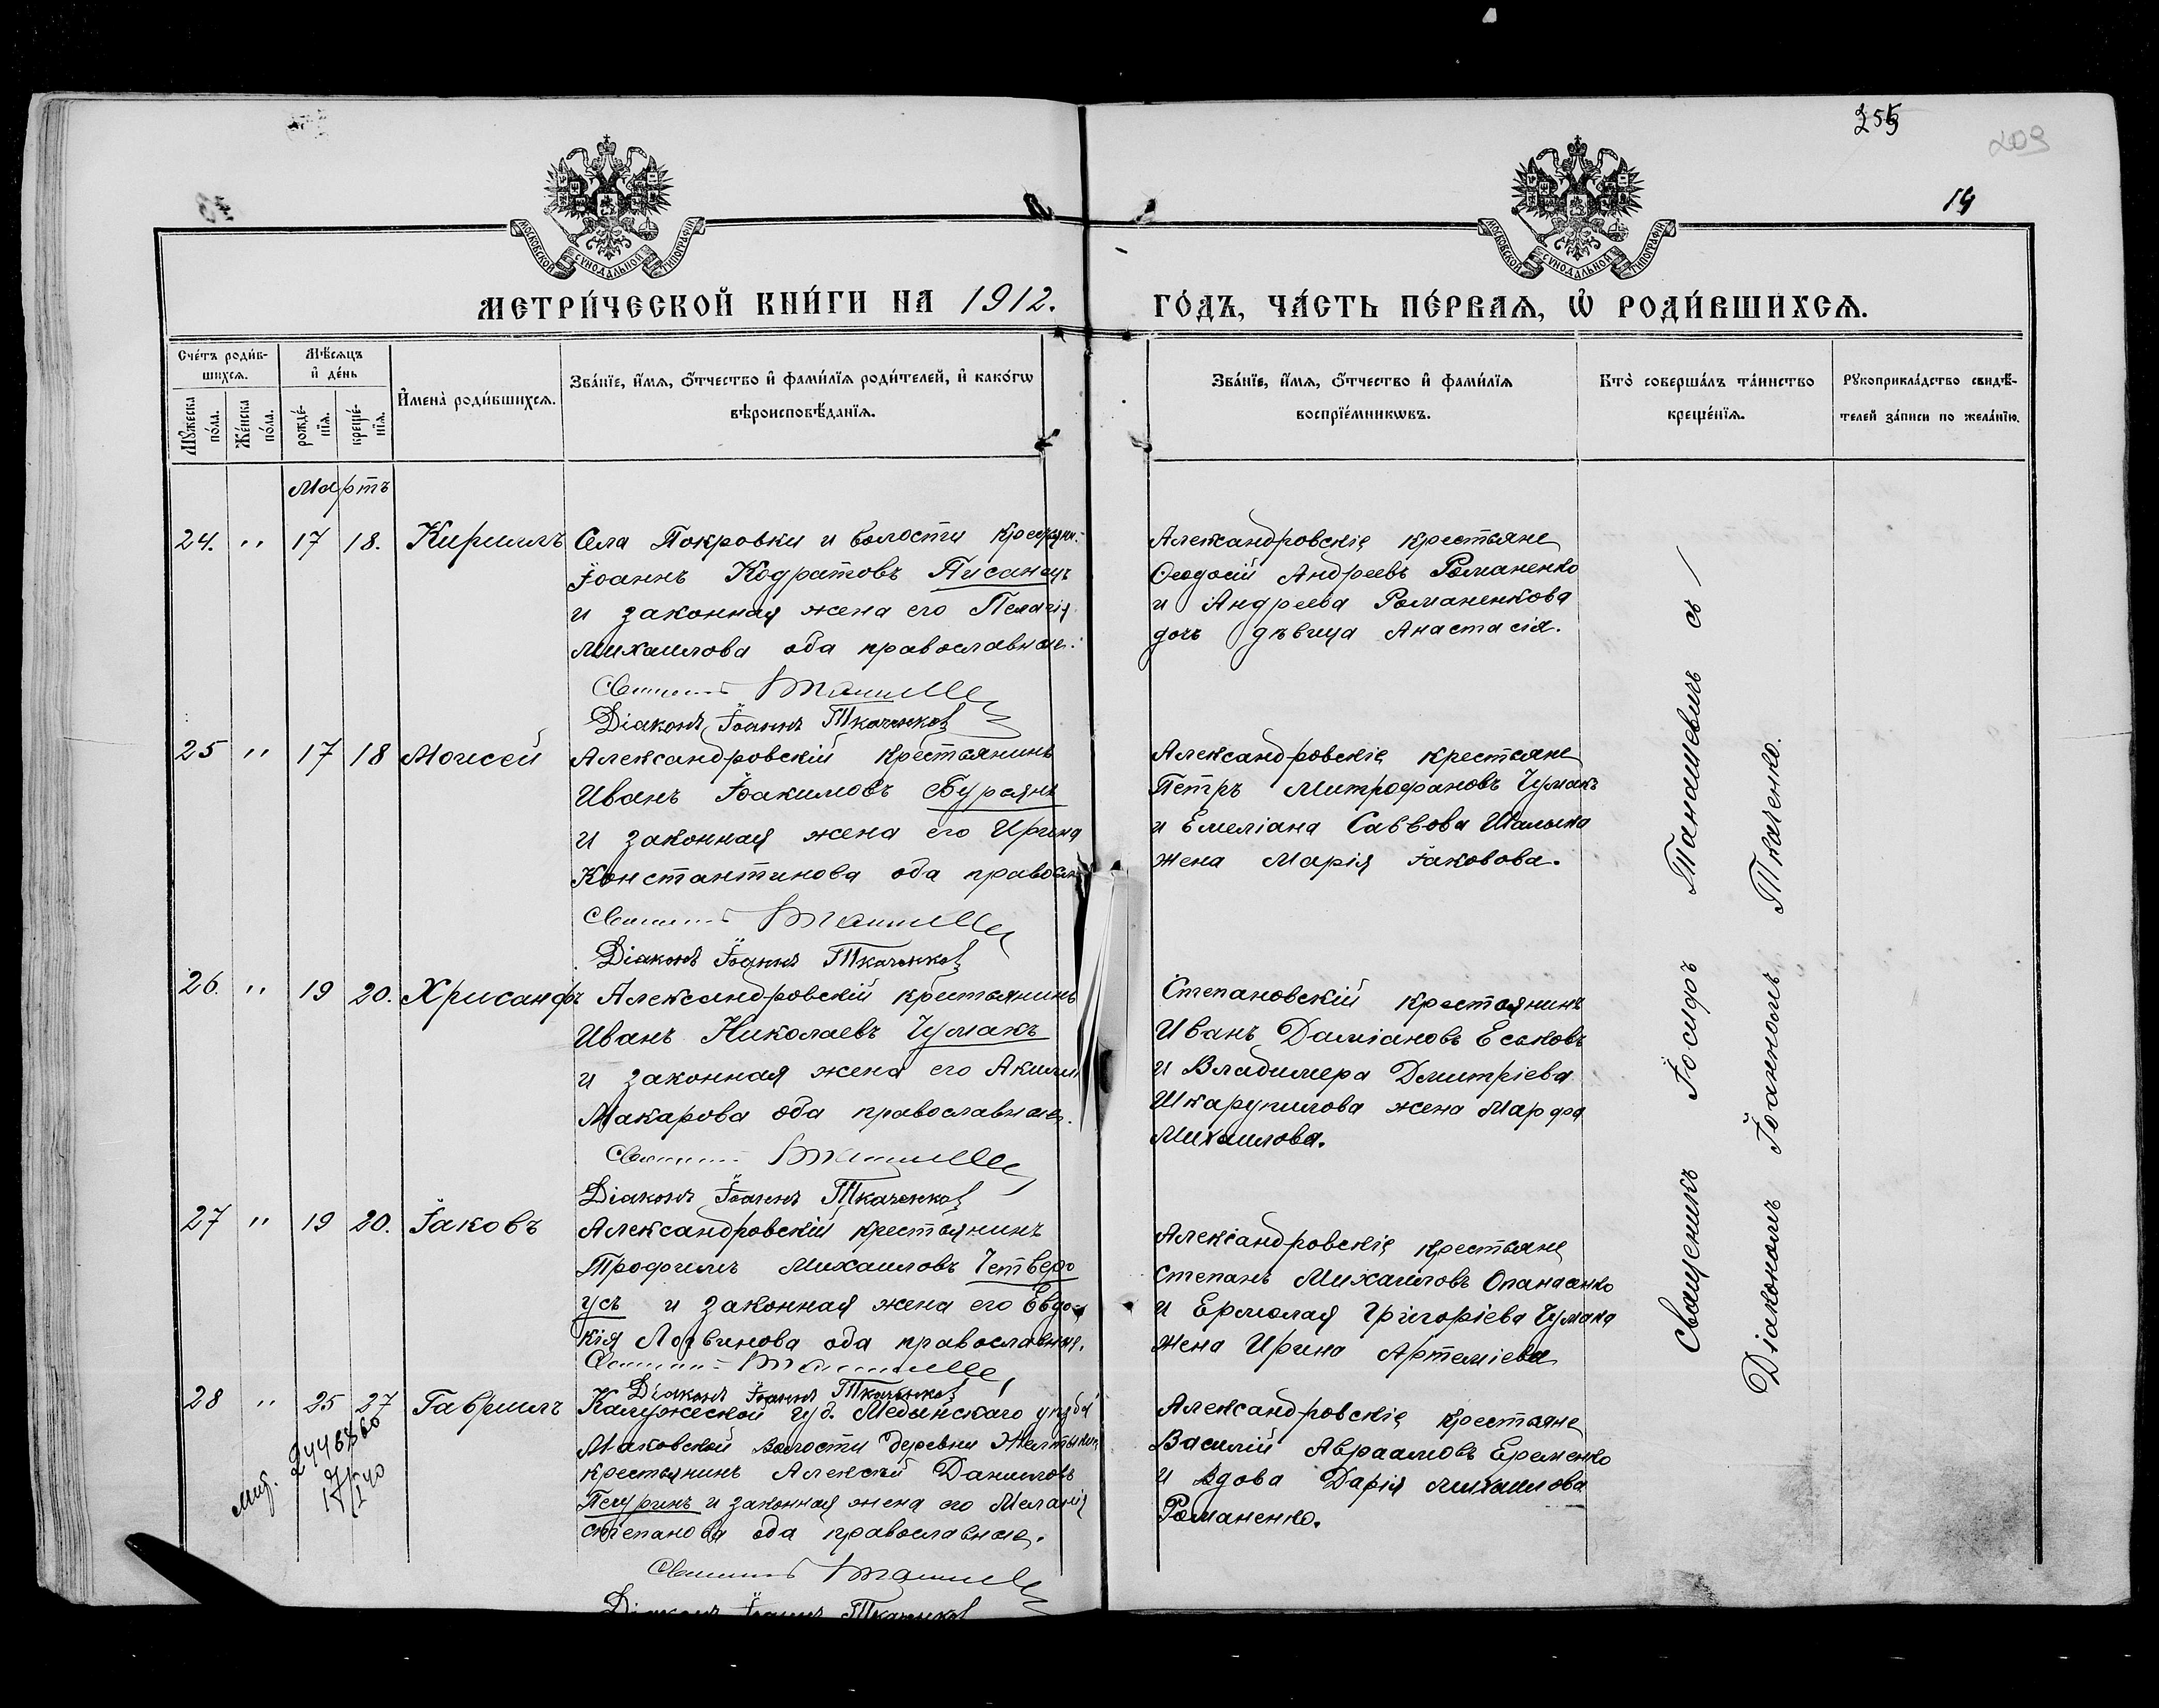 209
19
МОСКОВСКОЙ СУНОДАЛЬНОЙ ТИПОГРАФІИ
МОСКОВСКОЙ СУНОДАЛЬНОЙ ТИПОГРАФІИ
МЕТРИ́ЧЕСКОЙ КНИ́ГИ НА 1912.
ГО́ДЪ, ЧА́СТЬ ПЕ́РВАЯ, Ѡ҆ РОДИ́ВШИХСЯ.
Сче́тъ роди́в-
шихся.
Мꙋжеска по́ла.
Же́нска по́ла.
Мѣ́сяцъ
и҆ де́нь
рожде́-
нїя.
креще́-
нїя.
И҆мена̀ роди́вшихся.
Зва́нїе, и҆́мя, ѻ҆́тчество и҆ фами́лїя роди́телей, и҆ како́гѡ
вѣроисповѣ́данїя.
Зва́нїе, и҆́мя, ѻ҆́тчество и҆ фами́лїя
воспрїе́мникѡвъ.
Кто̀ соверша́лъ та́инство
креще́нїя.
Рꙋкоприкла́дство свидѣ́-
телей за́писи по жела́нїю.
Мартъ
24. " 17 18. Кириллъ
Села Покровки и волости крестьян.
Іоаннъ Кодратовъ Писанецъ
и законная жена его Пелагія
Михаилова оба православные.
Діаконъ Іоаннъ Ткаченко
Александровскіе крестьяне
Ѳеодосій Андреевъ Романенко
и Андреева Романенкова
дочь дѣвица Анастасія.
25 " 17 18 Моисей
Александровскій крестьянинъ
Иванъ Іоакимовъ Бурьянъ
и законная жена его Ирина
Константинова оба правосл
Діаконъ Іоаннъ Ткаченко
Александровскіе крестьяне
Петръ Митрофановъ Чумакъ
и Емеліана Саввова
жена Марія Іаковова.
26. " 19 20. Хрисанфъ
Александровскій крестьянинъ
Иванъ Николаевъ Чумакъ
и законная жена его Акилин
Макарова оба православные.
Діаконъ Іоаннъ Ткаченко
Степановскій крестьянинъ
Иванъ Даміановъ Еськовъ
и Владимера Дмитріева
Шкарупилова жена Марфа
Михаилова.
27 " 19 20. Іаковъ
Александровскій крестьянинъ
Трофимъ Михаиловъ Четверо
усъ и законная жена его Евдо-
кія Логвинова оба православные.
Діаконъ Іоаннъ Ткаченко
Александровскіе крестьяне
Степанъ Михаиловъ Опанасенко
и Ермолая Григоріева Чумака
жена Ирина Артеміева
28 " 25 27 Гавріилъ
Калужеской губ. Медынскаго уѣзда
волости деревни
крестьянинъ Алексѣй Даниловъ
и законная жена его Меланія
Степанова оба православные.
Діаконъ Іоаннъ Ткаченко
Александровскіе крестьяне
Василій Авраамовъ Еременко
и вдова Дарія Михаилова
Романенко.
Священникъ Іосифъ Танашевичъ съ
Діакономъ Іоанномъ Ткаченко.